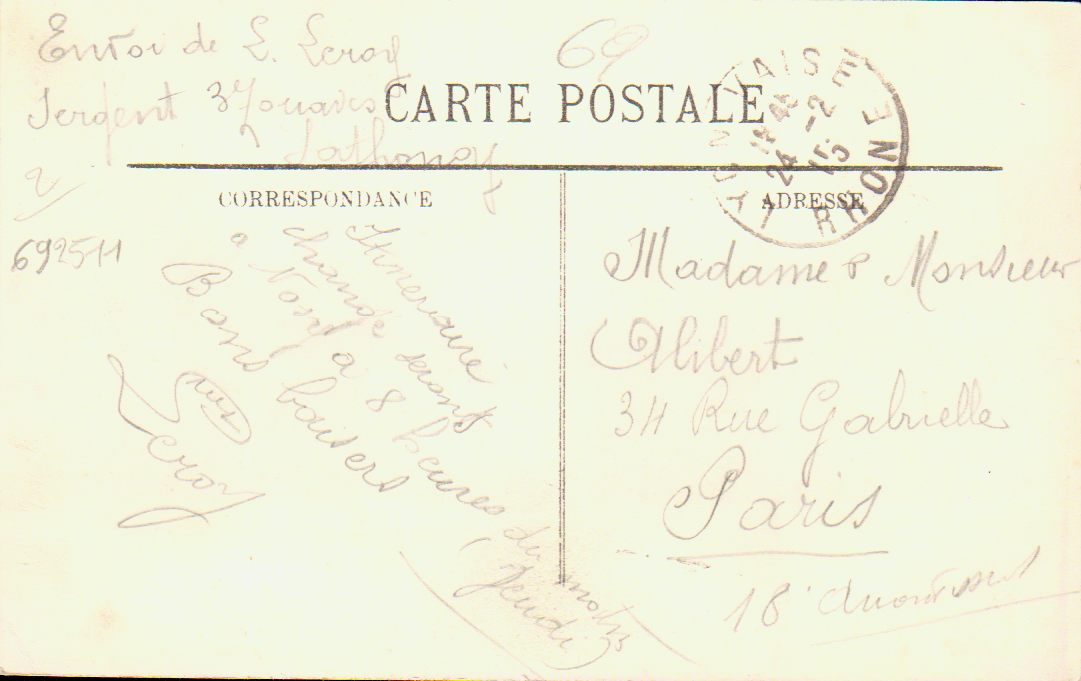 Envoi de L. Leroy
Sergent 3 Zouaves
Sathonay
2
69
CARTE POSTALE
LYON VAISE
24 -2
15
RHONE
CORRESPONDANCE
ADRESSE
692511
Itineraire
change serons
a Nosy a 8 heures du matin
Jeudi
Bons baisers
Leroy
Madame & Monsieur
Alibert
34 Rue Gabrielle
Paris
18